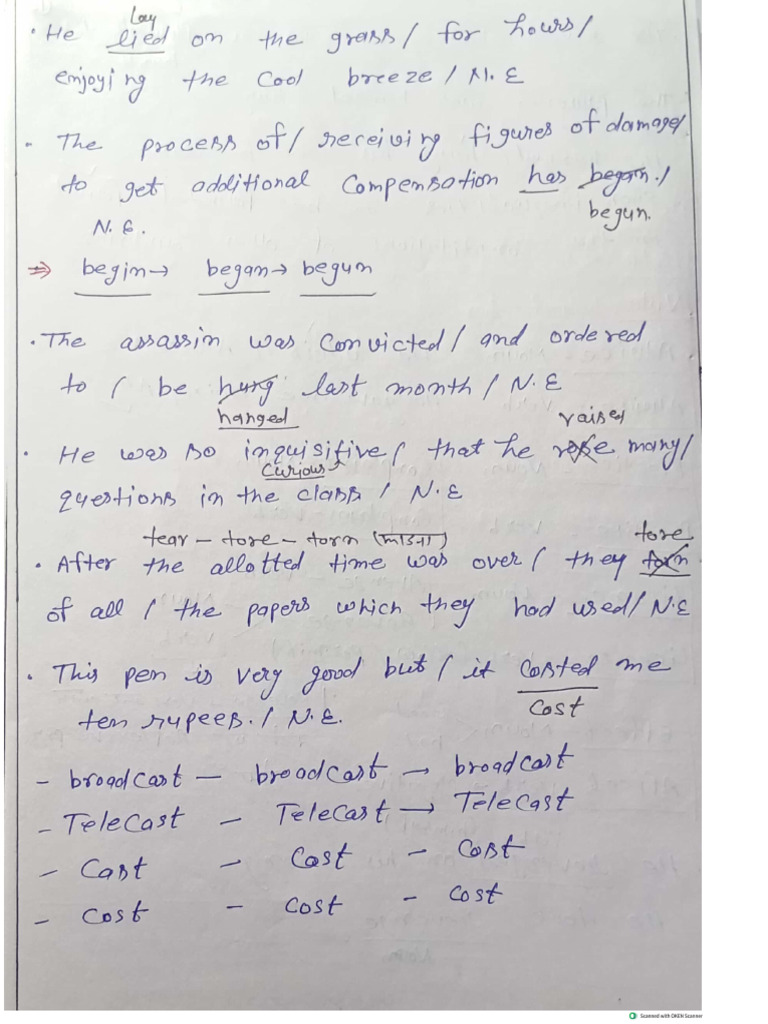 Lay
· He lied on the grass / for hours /
enjoying the cool breeze / N.E
· The process of / receiving figures of damage/
to get additional compensation has began. /
begun.
N.E.
⇒ begin → began → begun
· The assassin was convicted / and ordered
to / be hung last month / N.E
hanged
raised
· He was so inquisitive / that he rose many/
curious
questions in the class / N.E
tear – tore – torn (फाड़ना)
tore
· After the allotted time was over / they torn
of all / the papers which they had used / N.E
· This pen is very good but / it costed me
cost
ten rupees. / N.E.
- broadcast – broadcast → broadcast
- Telecast – Telecast → Telecast
- Cast – Cast – Cast
- Cost – Cost – Cost
Scanned with OKEN Scanner